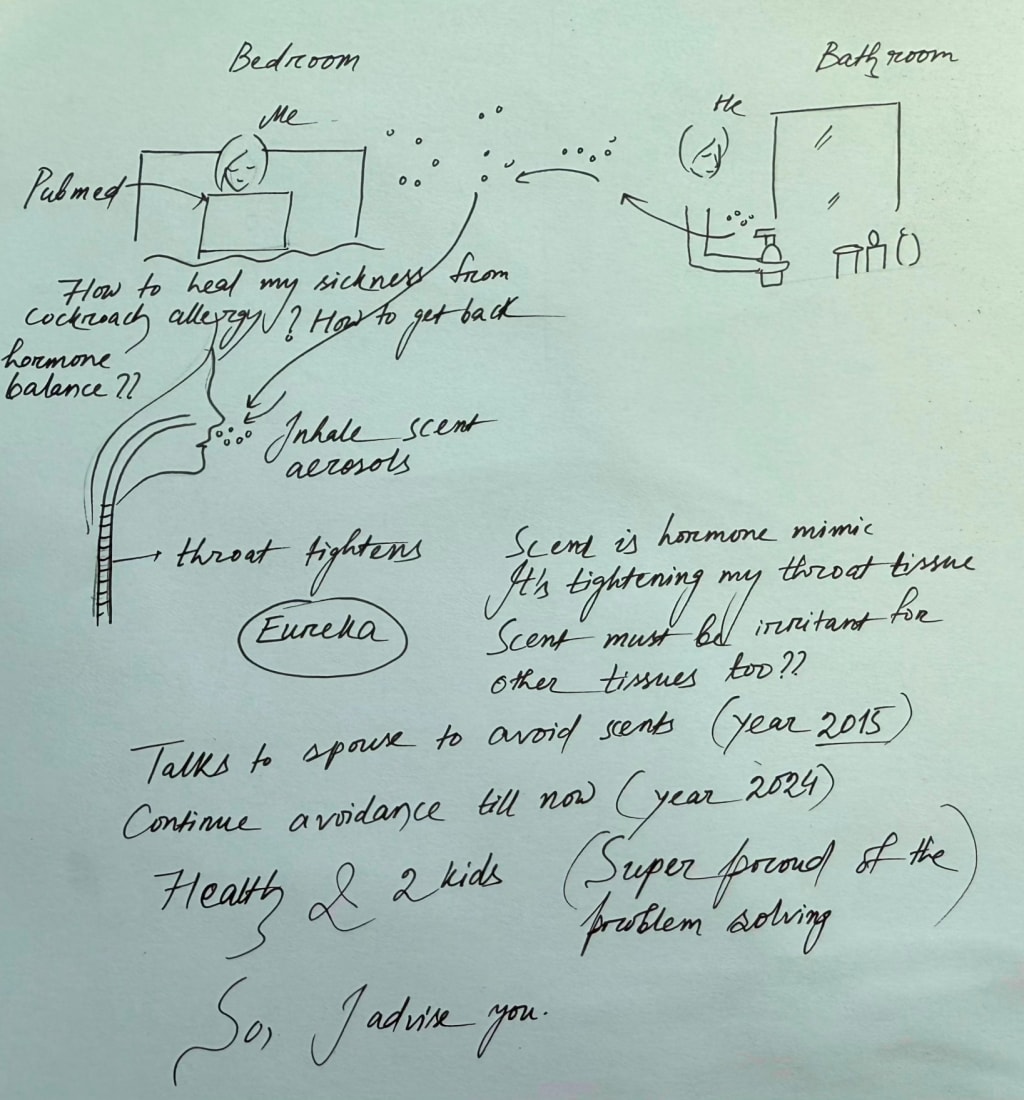 Bedroom
Bathroom
Me
He
Pubmed
How to heal my sickness from
cockroach allergy? How to get back
hormone
balance??
Inhale scent
aerosols
throat tightens
Eureka
Scent is hormone mimic
It's tightening my throat tissue
Scent must be irritant for
other tissues too??
Talks to spouse to avoid scents (year 2015)
Continue avoidance till now (year 2024)
Health & 2 kids
(Super proud of the
problem solving)
So, I advise you.